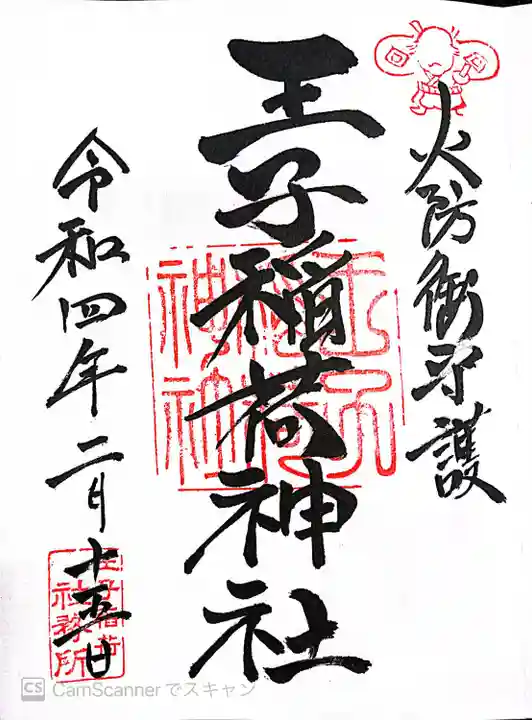 火防御守護
王子稲荷神社
王子稲荷神社
令和四年二月十五日
王子稲荷社務所
CS CamScannerでスキャン